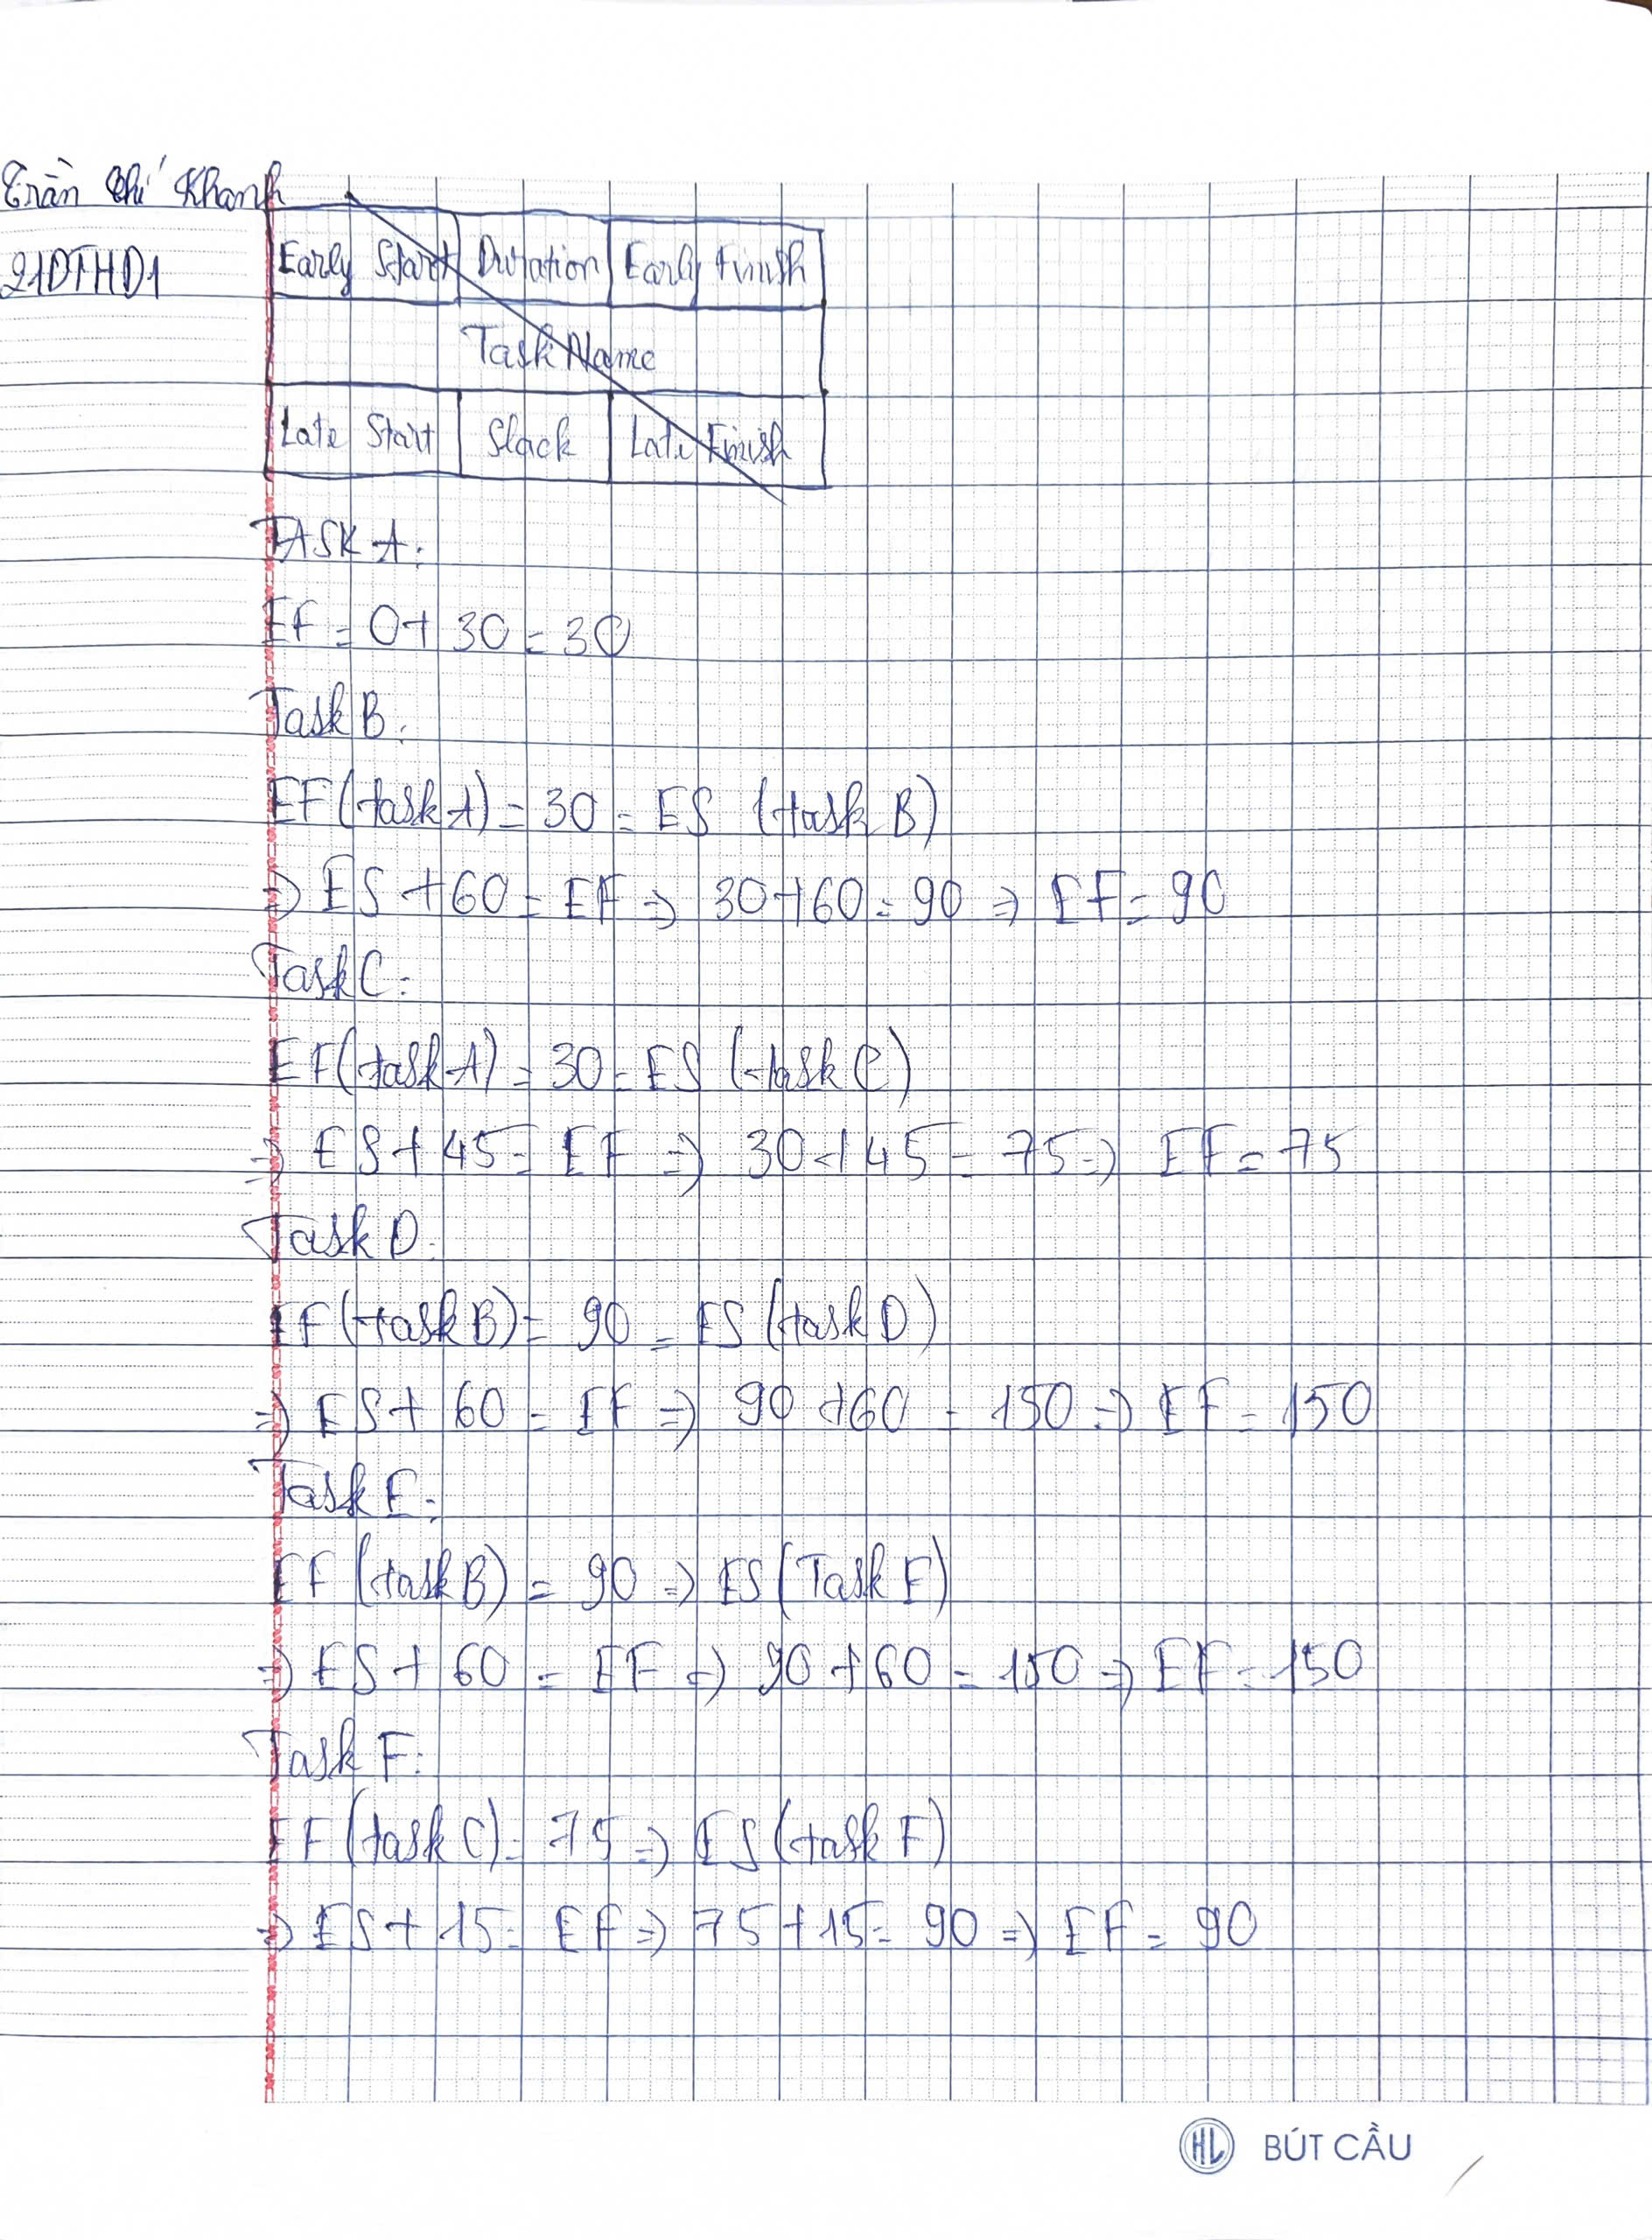 Trần Chí Khanh
21DTHD1
Early Start Duration Early Finish
Task Name
Late Start Slack Late Finish
TASK A:
EF = 0 + 30 = 30
Task B:
EF (task A) = 30 = ES (task B)
=> ES + 60 = EF => 30 + 60 = 90 => EF = 90
Task C:
EF (task A) = 30 = ES (task C)
=> ES + 45 = EF => 30 + 45 = 75 => EF = 75
Task D:
EF (task B) = 90 = ES (task D)
=> ES + 60 = EF => 90 + 60 = 150 => EF = 150
Task E:
EF (task B) = 90 => ES (Task E)
=> ES + 60 = EF => 90 + 60 = 150 => EF = 150
Task F:
EF (task C) = 75 => ES (task F)
=> ES + 15 = EF => 75 + 15 = 90 => EF = 90
HL BÚT CẦU